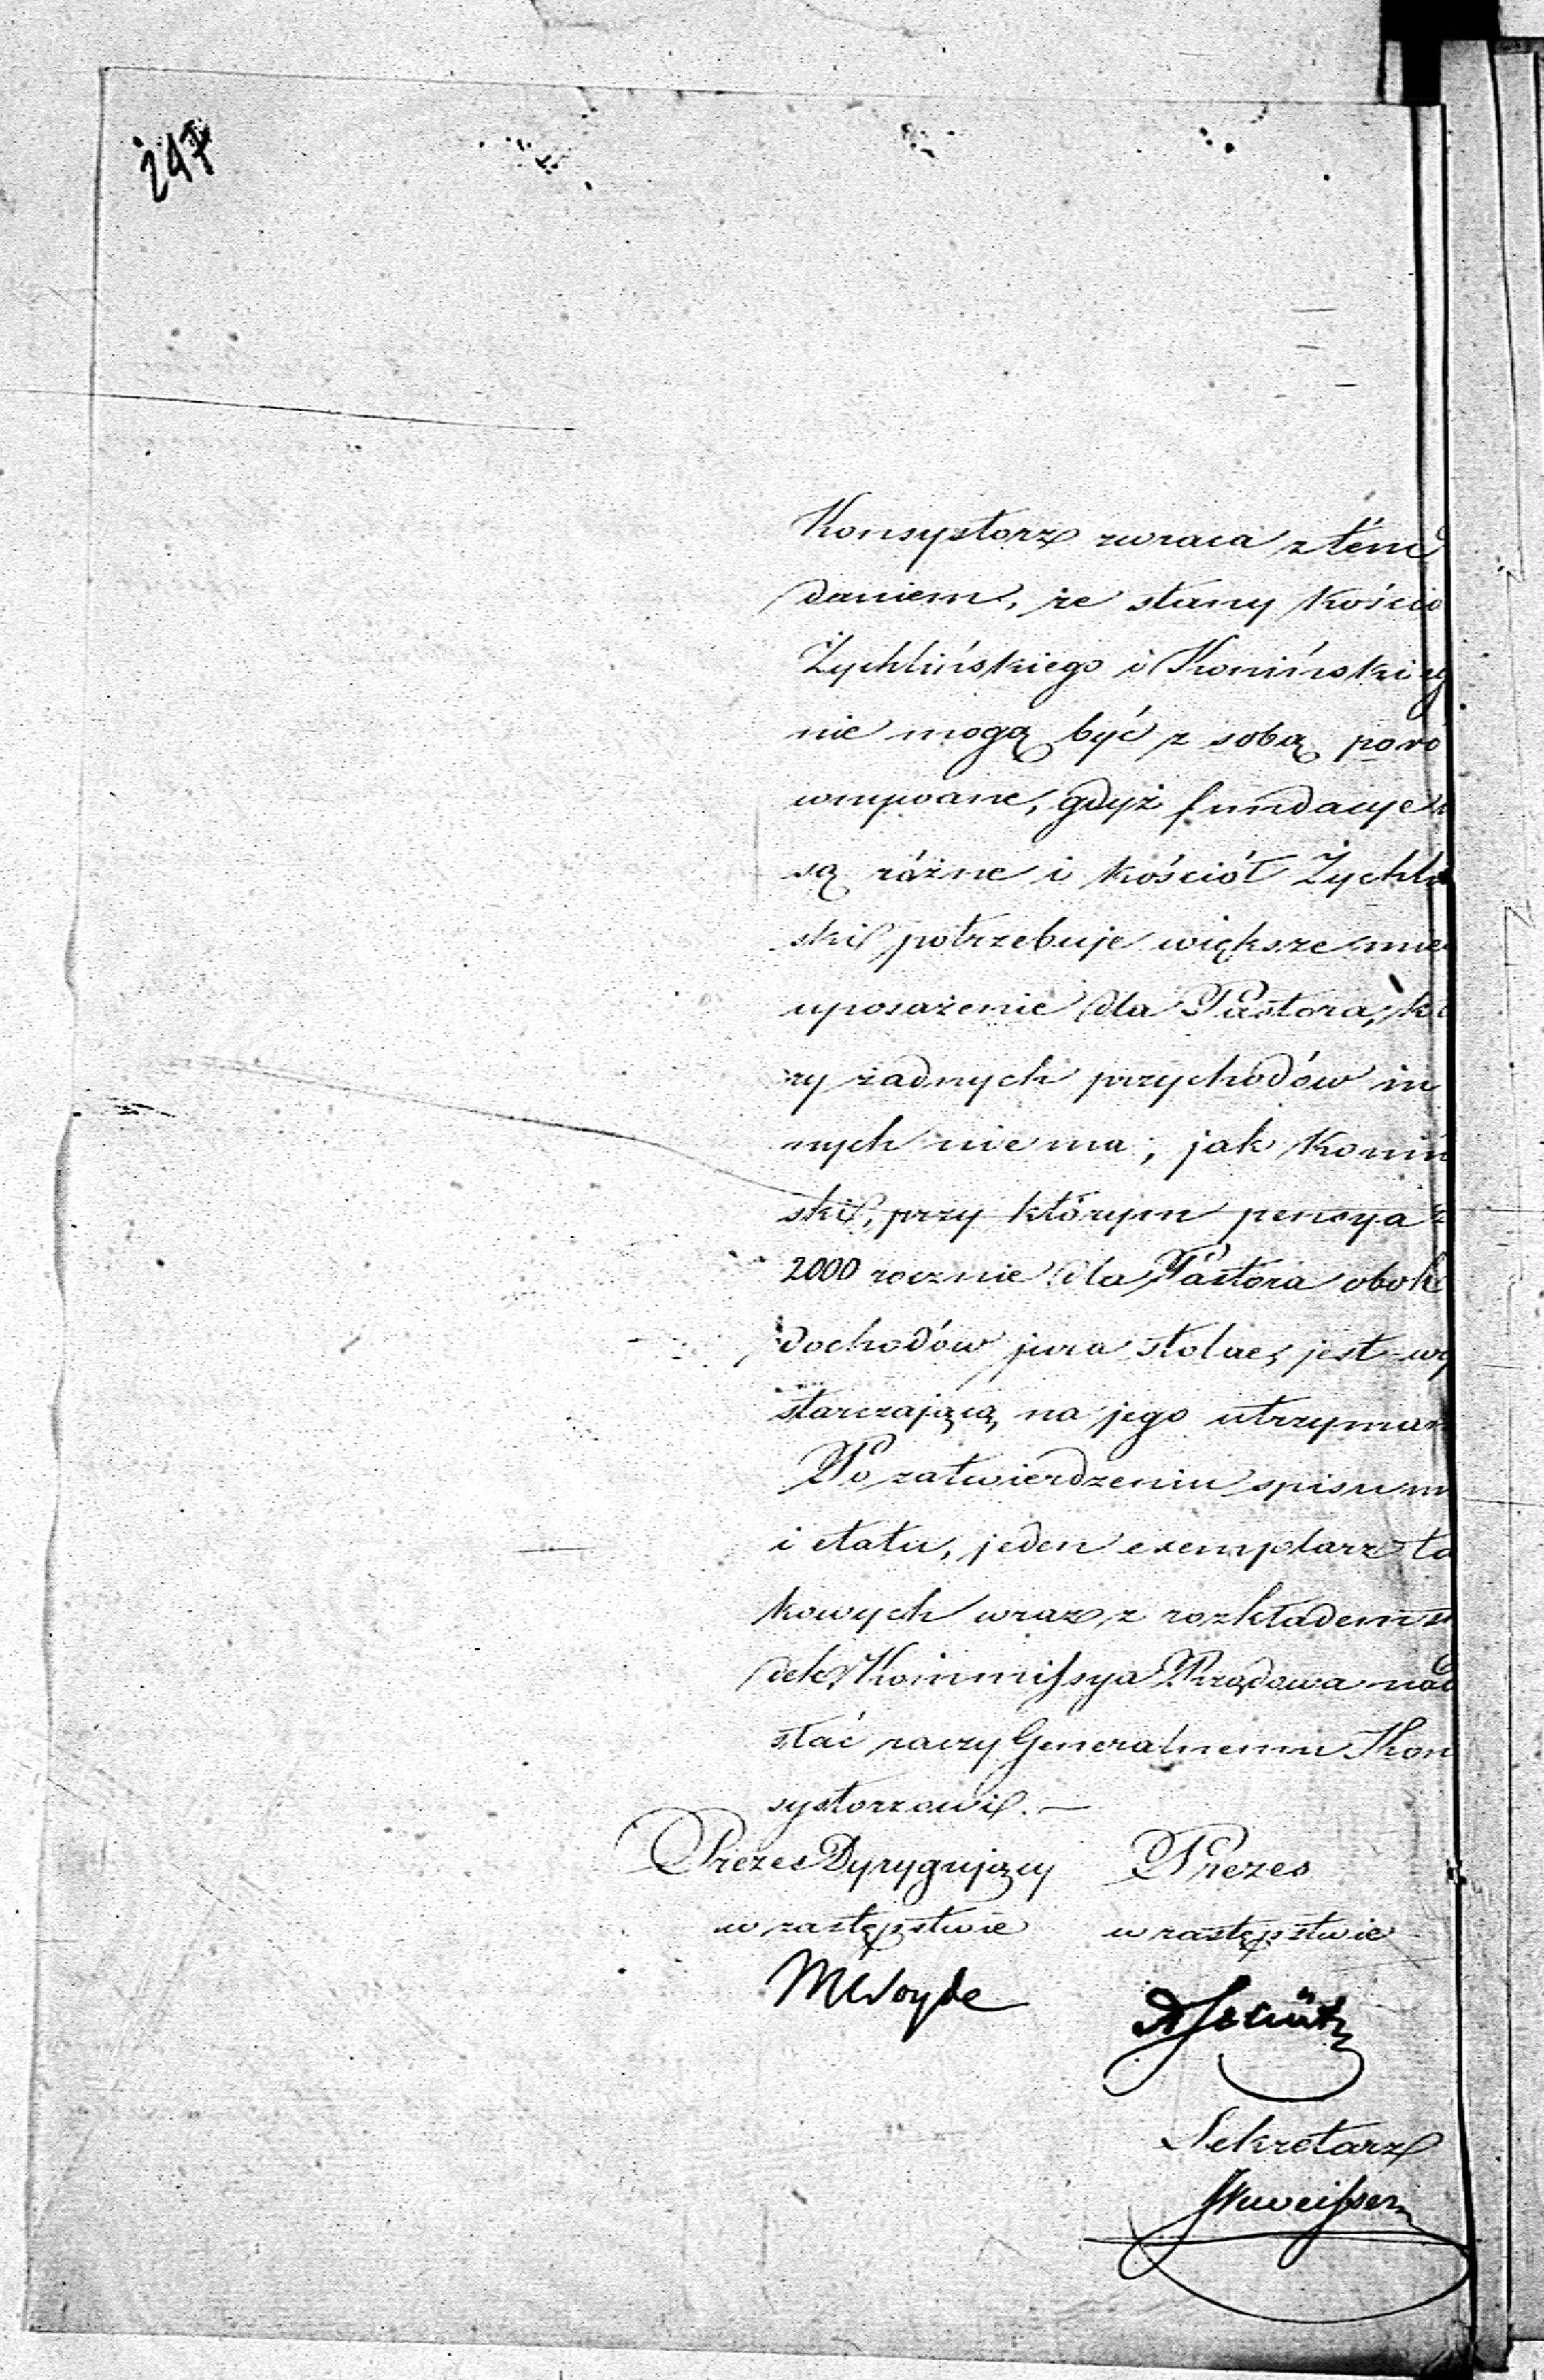 247
Konsystorz zwraca z tém
daniem, że stany kościo
Żychlińskiego i Konińskieg
nie mogą być z sobą poró
wnywane, gdyż fundacye
są różne i kościół Żychliń
ski potrzebuje większe
uposażenie dla Pastora, któ
ry żadnych przychodów in
nych nie ma, jak Koniń
ski, przy którym pensya
2000 rocznie dla Pastora obok
dochodów jura stolae, jest wy
starczającą na jego utrzyman
Po zatwierdzeniu spisu
i etatu, jeden exemplarz ta
kowych wraz z rozkładem
Kommissya Rządowa nad
słać raczy Generalnemu Kon
systorzowi. —
Prezes Dyrygujący Prezes
w zastępstwie w zastępstwie
MWoyde
Sekretarz